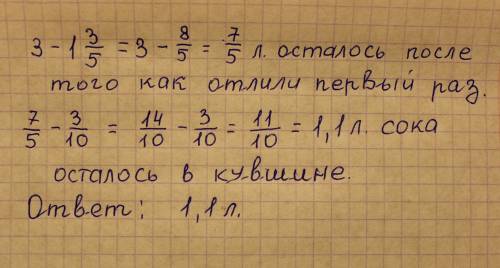 3 - 1 3/5 = 3 - 8/5 = 7/5 л. осталось после
того как отлили первый раз.
7/5 - 3/10 = 14/10 - 3/10 = 11/10 = 1,1 л. сока
осталось в кувшине.
Ответ: 1,1 л.